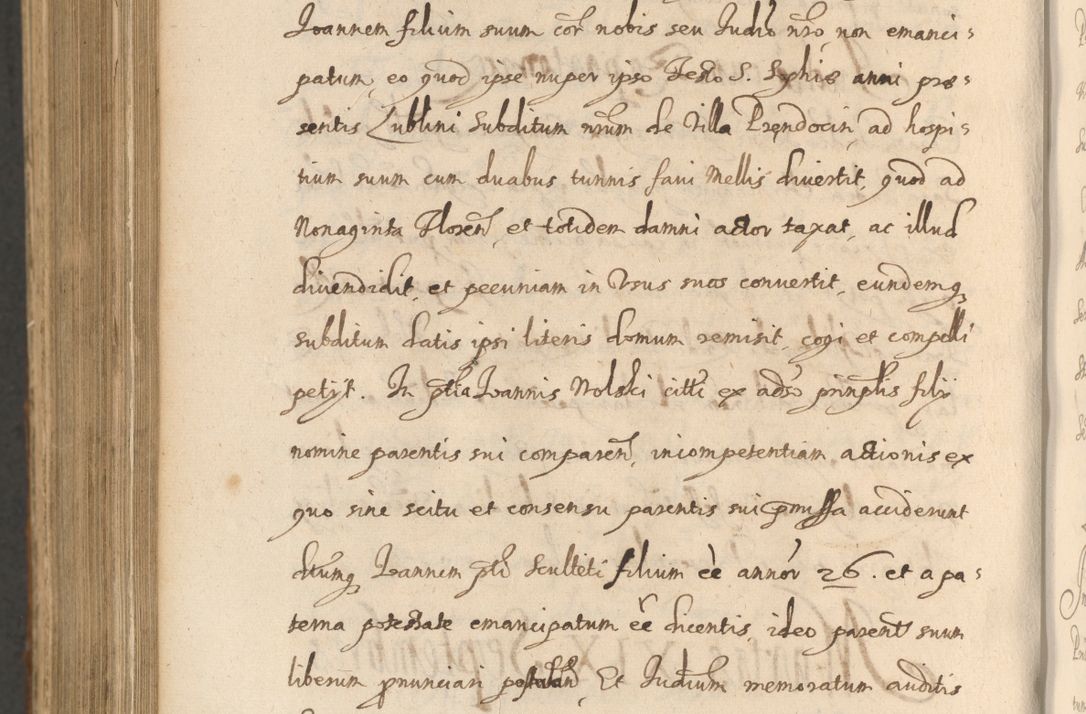 Joannem filium suum cor nobis seu Judio nro, non emanci-
patum, eo quod ipse nuper ipso Festo S. Sophiæ anni præ-
sentis Lublini Subditum nrum de Villa Prendocin, ad hospi-
tium suum cum duabus tunnis favi Mellis divertit, quod ad
Nonaginta Floren, et totidem damni actor taxat, ac illud
divendidit, et pecuniam in Usus suos convertit, eundemq
subditum datis ipsi literis domum remisit, cogi et compelli
petijt. In ptia Joannis Wolski citti ex adso prinplis filij
nomine parentis sui comparen, incompetentiam actionis ex
quo sine scitu et consensu parentis sui præmissa acciderunt
dtumq Joannem pti Sculteti filium eē annor 26. et a pa-
terna potestate emancipatum eē dicentis, ideo parent suum
liberum pnunciari postulan, Et Judium memoratum auditis